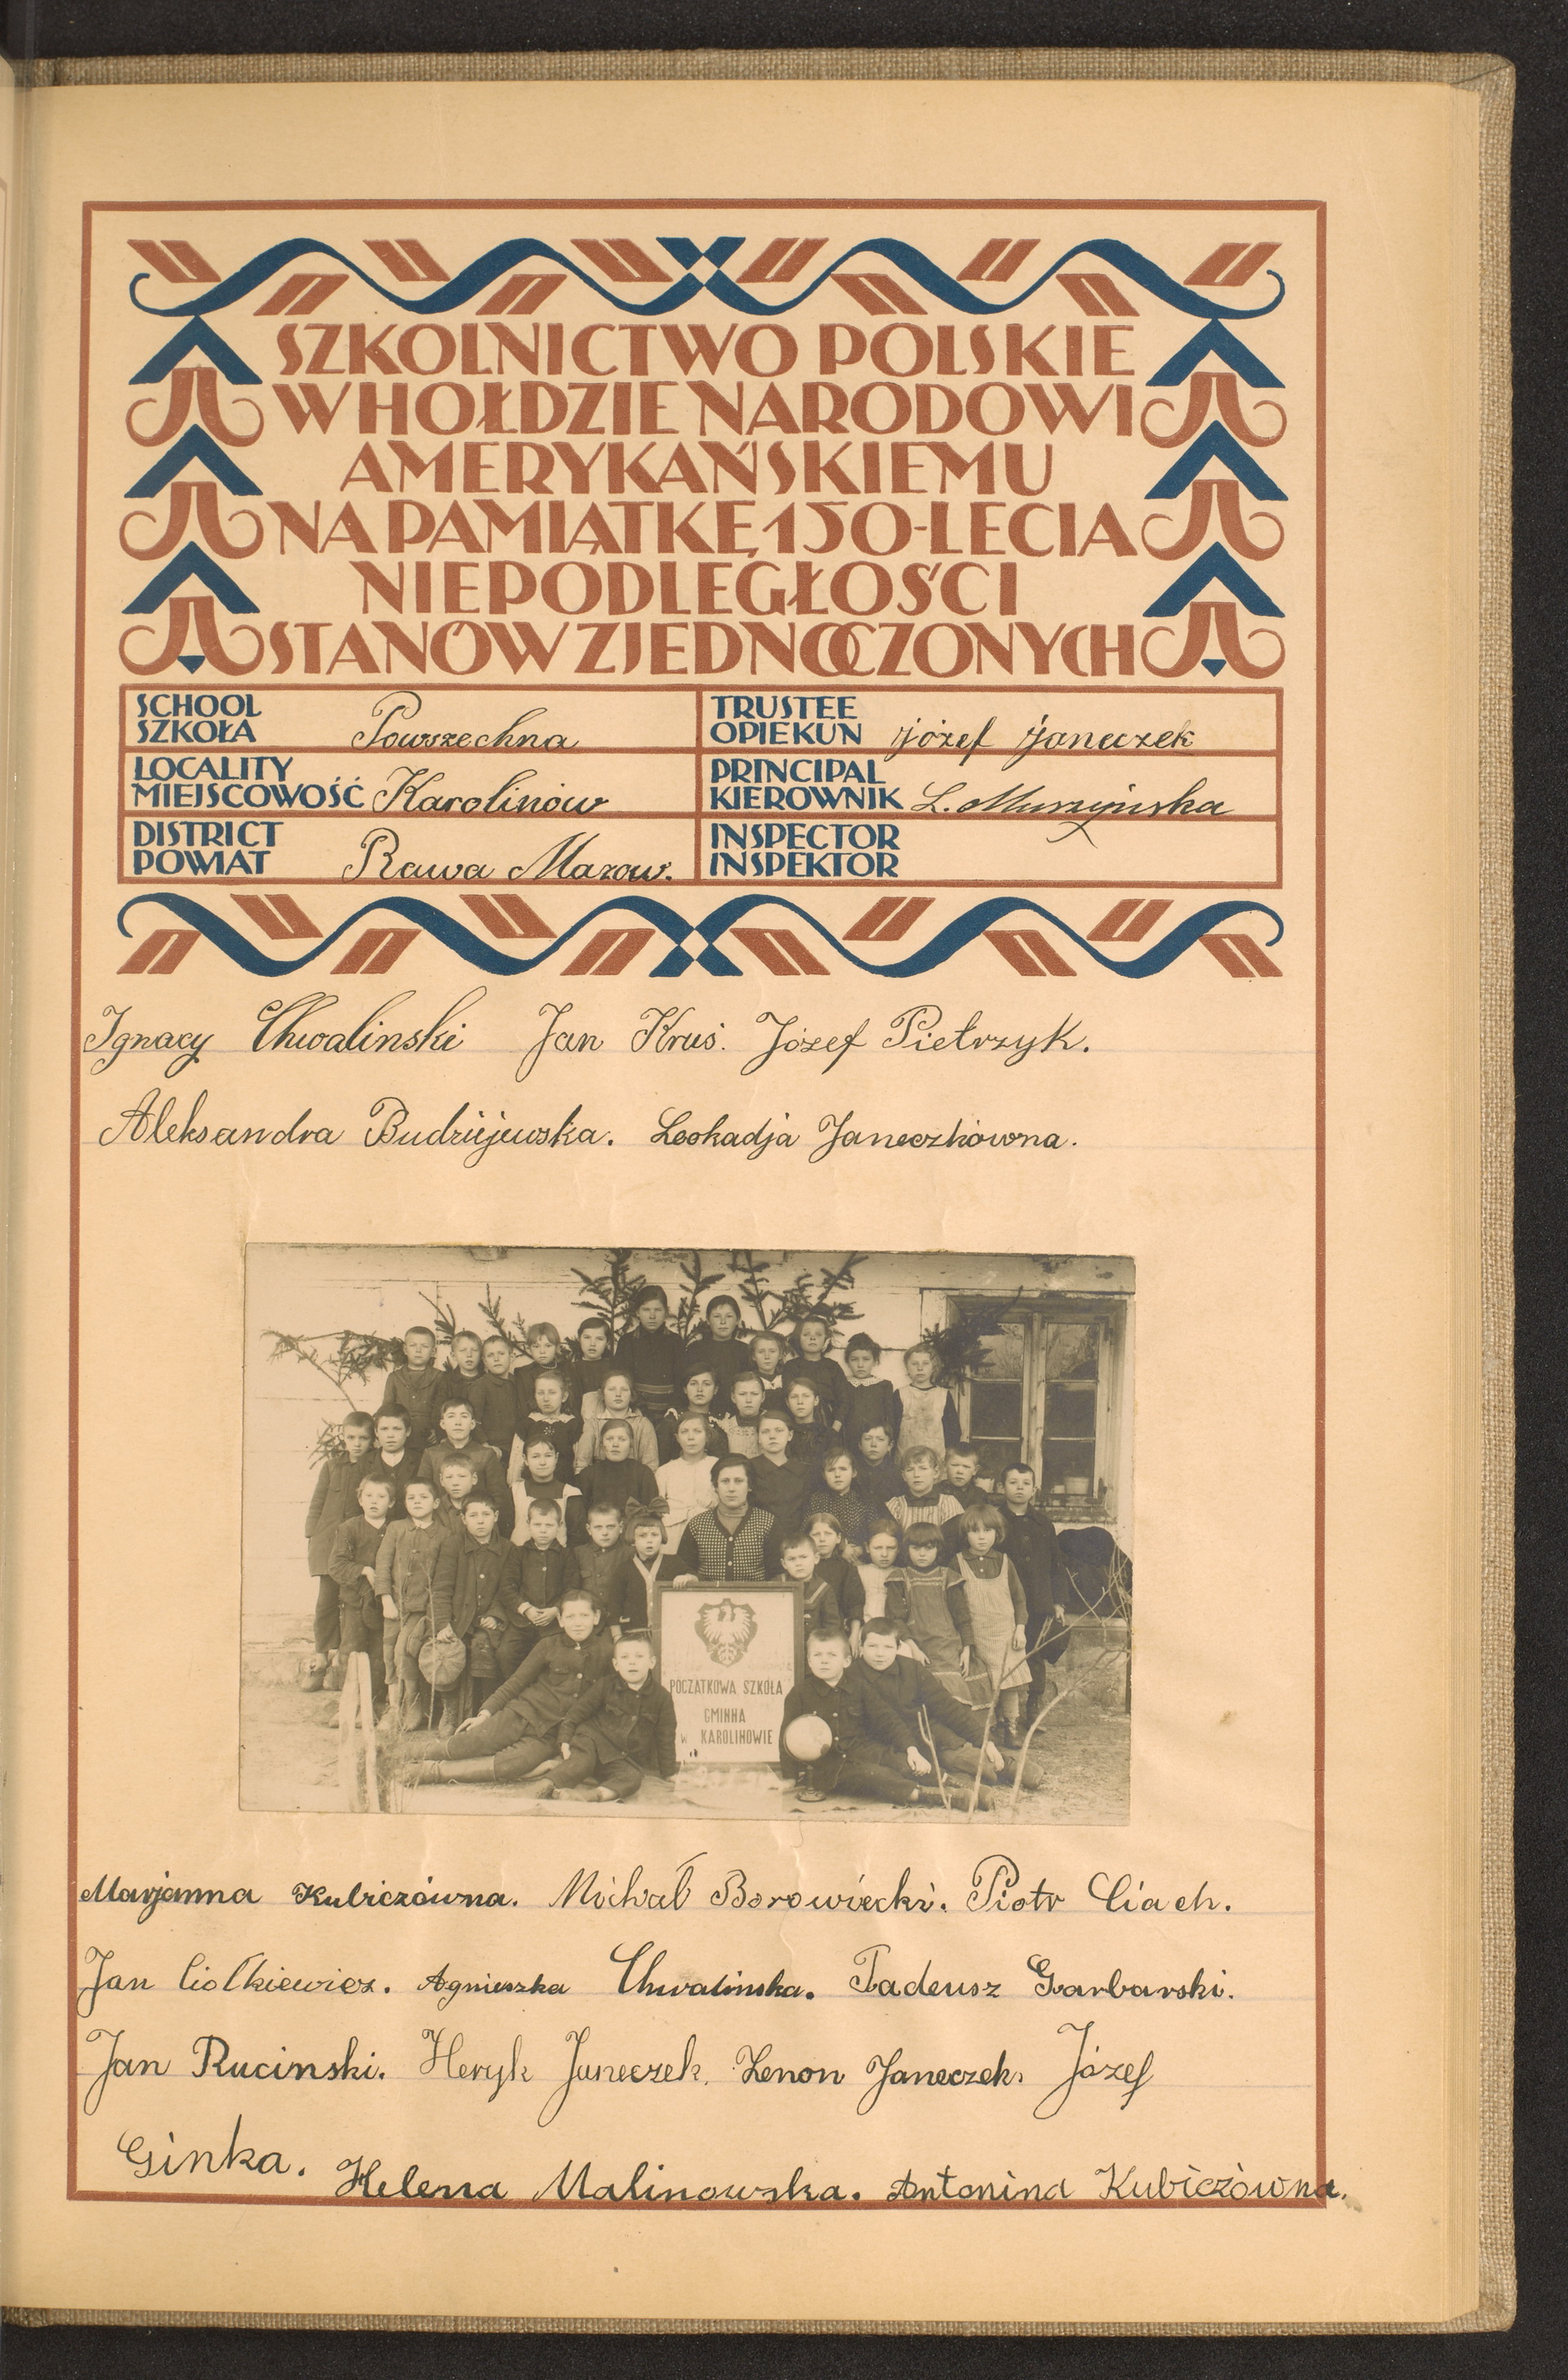 SZKOLNICTWO POLSKIE
W HOŁDZIE NARODOWI
AMERYKAŃSKIEMU
NA PAMIĄTKĘ 150-LECIA
NIEPODLEGŁOŚCI
STANÓW ZJEDNOCZONYCH
SCHOOL
SZKOŁA Powszechna
TRUSTEE
OPIEKUN Józef Janeczek
LOCALITY
MIEJSCOWOŚĆ Karolinów
PRINCIPAL
KIEROWNIK L. Muszyńska
DISTRICT
POWIAT Rawa Mazow.
INSPECTOR
INSPEKTOR
Ignacy Chwalinski Jan Kruś. Józef Pietrzyk.
Aleksandra Budziejewska. Leokadja Janeczkówna.
POCZATKOWA SZKOŁA
GMINNA
w KAROLINOWIE
Marjanna Kubiczówna. Michał Borowiecki. Piotr Ciach.
Jan Ciołkiewicz. Agnieszka Chwalinska. Tadeusz Garbarski.
Jan Rucinski. Heryk Janeczek. Zenon Janeczek. Józef
Ginka. Helena Malinowska. Antonina Kubiczówna.